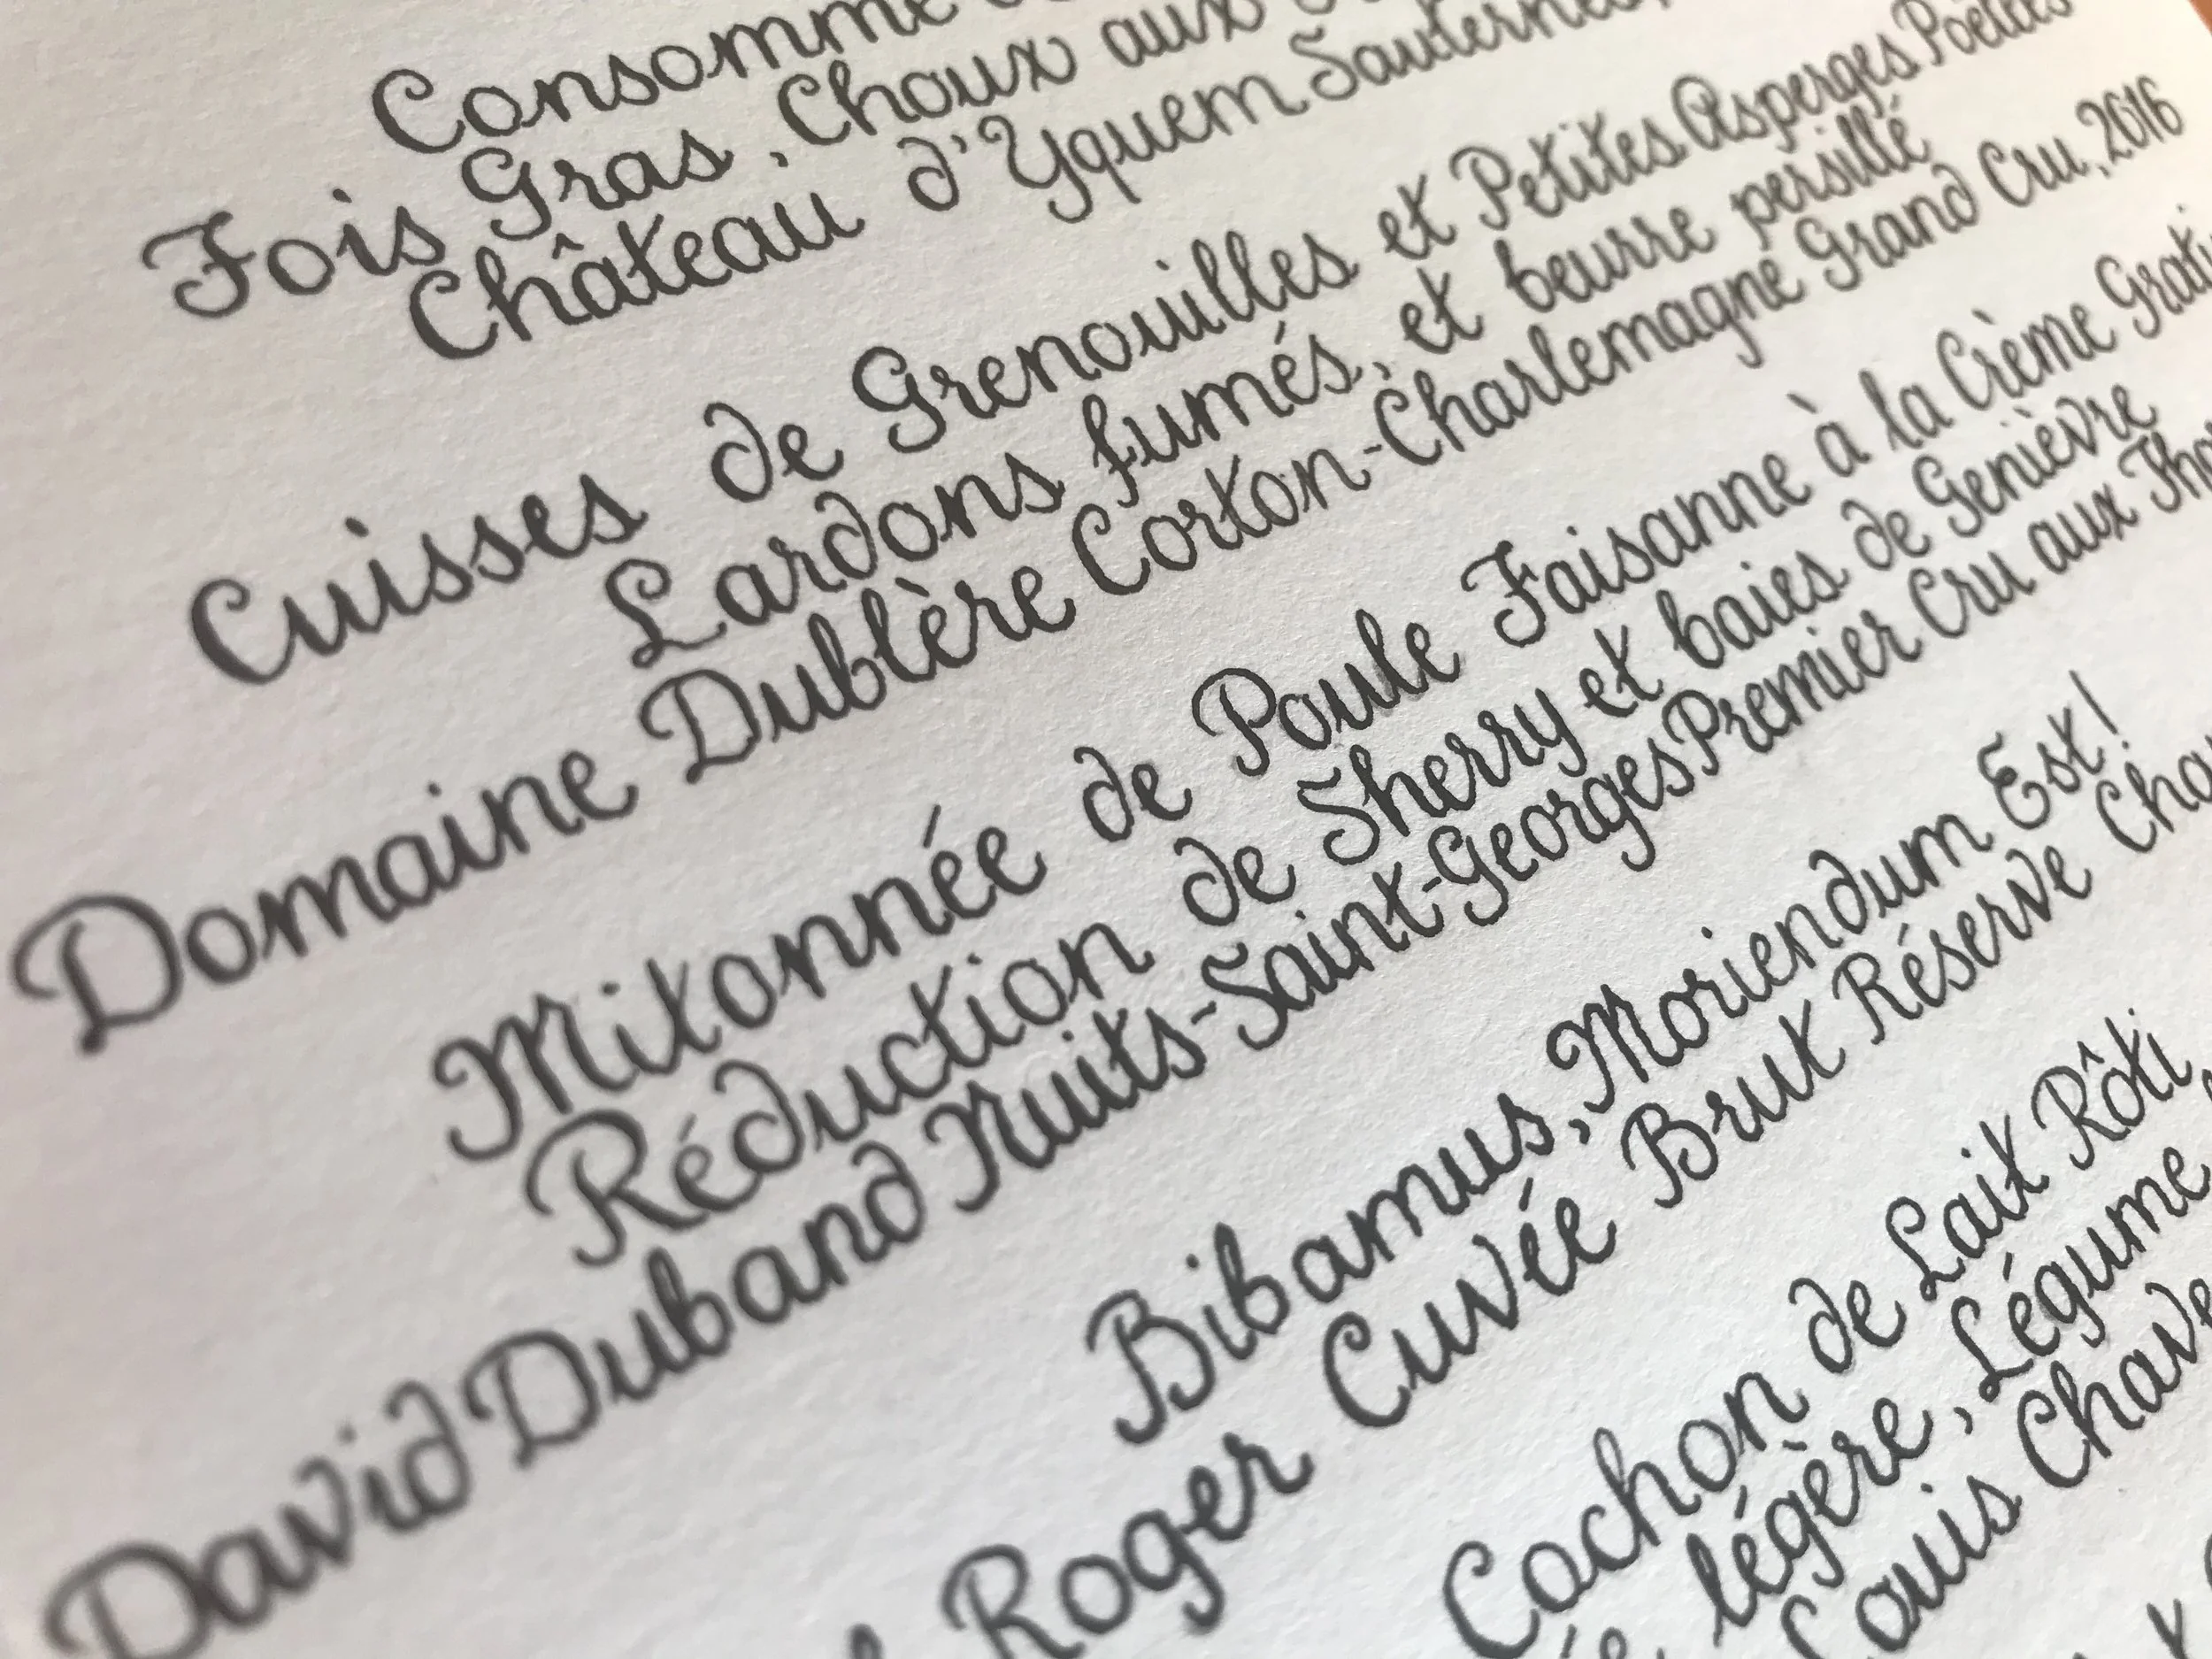 Consommé
Fois Gras, Choux aux
Château d'Yquem Sauternes,
Cuisses de Grenouilles et Petites Asperges Poêlées
Lardons fumés, et beurre persillé
Domaine Dublère Corton-Charlemagne Grand Cru, 2016
Mitonnée de Poule Faisanne à la Crème
Réduction de Sherry et baies de Genièvre
David Duband Nuits-Saint-Georges Premier Cru aux
Bibamus, Moriendum Est!
Roger Cuvée Brut Réserve
Cochon de Lait Rôti
légère, Légume
Louis Chave